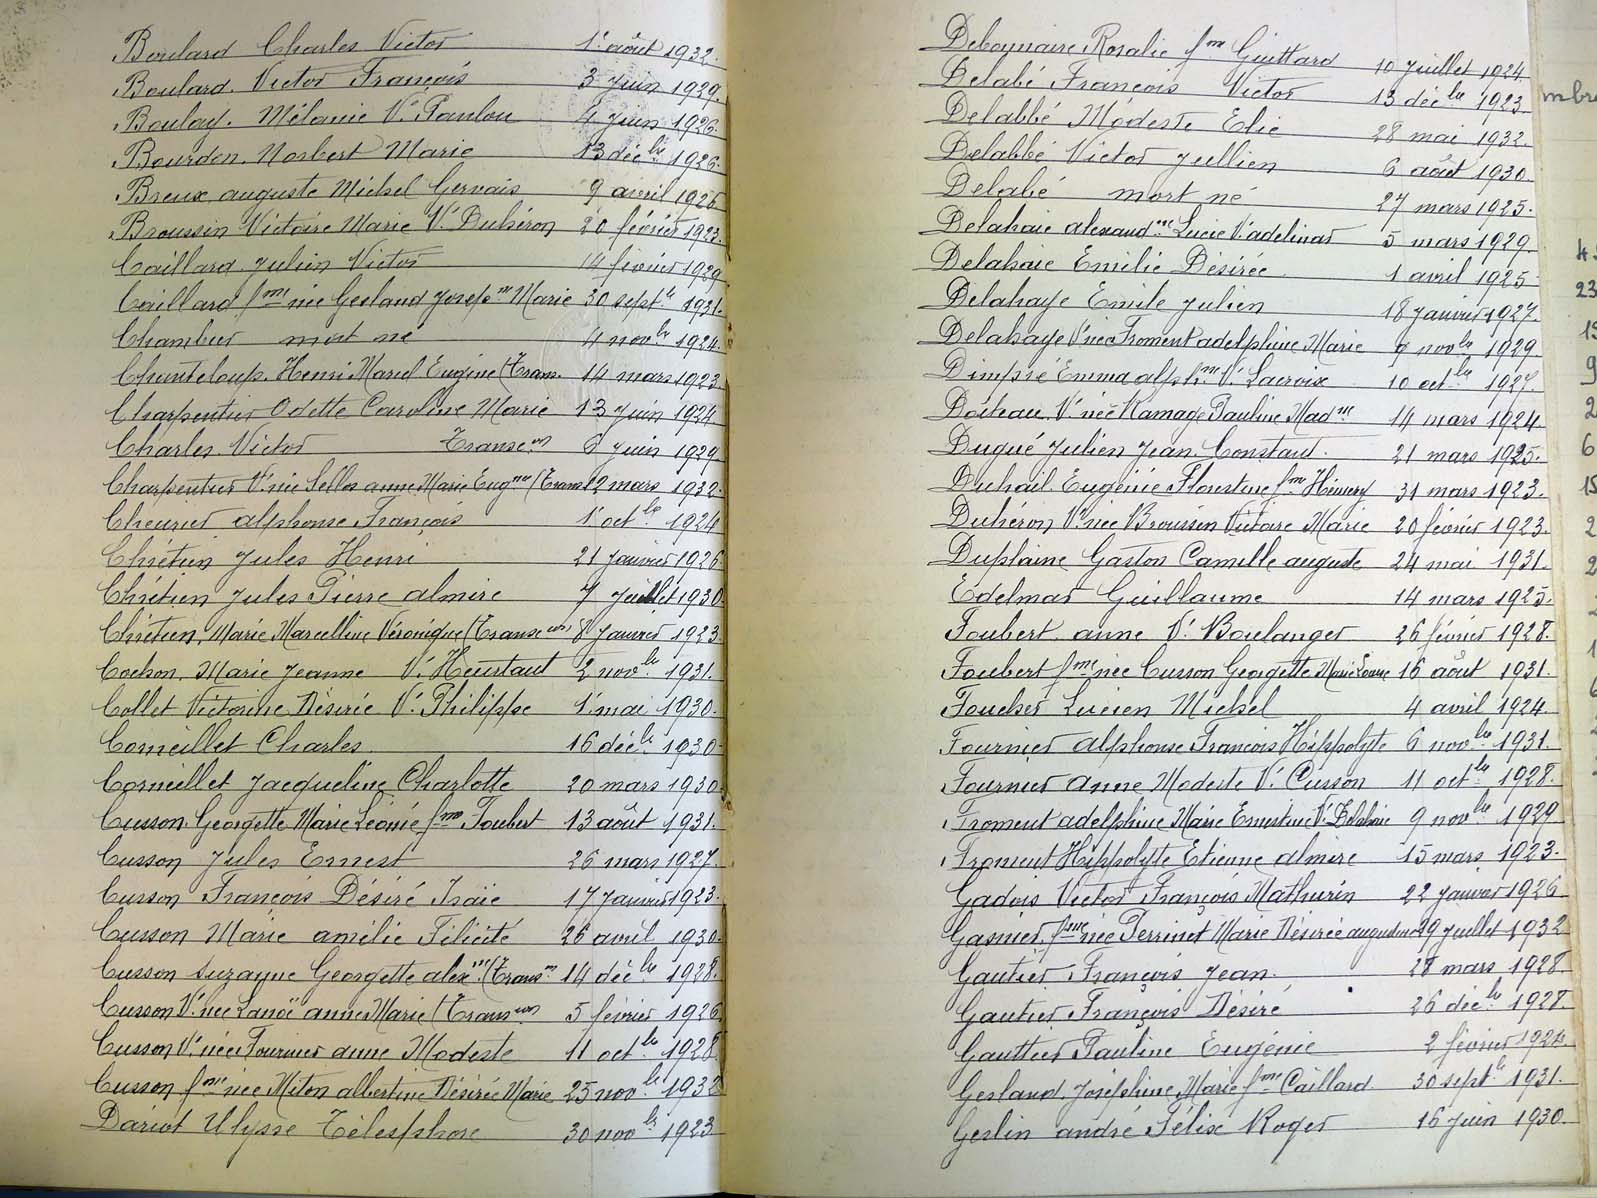 Boulard Charles Victor 1er août 1932.
Boulard Victor François 3 Juin 1929.
Boulay. Mélanie Ve Panlou 4 Juin 1926.
Bourdon Norbert Marie 13 décbre 1926.
Breux auguste Michel Gervais 9 avril 1926
Broussin Victoire Marie Ve Duhéron 20 février 1923.
Caillard Julien Victor 14 février 1929
Caillard fme née Gesland Josephne Marie 30 septbre 1931.
Chambrier mort né 4 novbre 1924.
Chanteloup. Henri Marcel Eugène (Tran. 14 mars 1923.
Charpentier Odette Caroline Marie 13 Juin 1924.
Charles Victor Transon 6 Juin 1929.
Charpentier Ve née Sellos anne Marie Eugnie (Trans 12 mars 1932.
Cheurier alphonse François 1er octbre 1924
Chrétien Jules Henri 21 Janvier 1926
Chrétien Jules Pierre almire 7 Juillet 1930
Chrétien, Marie Marcelline Véronique (Transon) 8 Janvier 1923
Cochon, Marie Jeanne Ve Heurtaut 2 novbre 1931.
Collet Victorine Désirée Ve Philippe 1er mai 1930.
Corneillet Charles 16 décbre 1930
Corneillet Jacqueline Charlotte 20 mars 1930
Cusson Georgette Marie Léonie fme Foubert 13 août 1931.
Cusson Jules Ernest 26 mars 1927.
Cusson François Désiré Isaïe 17 Janvier 1923.
Cusson Marie amélie Félicité 26 avril 1930.
Cusson Suzanne Georgette alexne (Transon 14 décbre 1928.
Cusson Ve née Lanoë anne Marie (Transon) 5 février 1926
Cusson Ve née Fournier anne Modeste 11 octbre 1928
Cusson fme née Miton albertine Désirée Marie 25 novbre 1932
Dariot Ulysse Télesphore 30 novbre 1923
Debonnaire Rosalie fme Guittard 10 Juillet 1924
Delabé François Victor 13 décbre 1923
Delabbé Modeste Elie 28 mai 1932.
Delabbé Victor Jullien 6 août 1930.
Delabé mort né 27 mars 1925.
Delahaie alexandne Lucie Ve adelinas 5 mars 1929.
Delahaie Emilie Désirée 1 avril 1925
Delahaye Emile Julien 18 Janvier 1927.
Delahaye Ve née Froment adelphine Marie 9 novbre 1929
Dimpré Emma alphne Ve Lacroix 10 octbre 1927
Doiteau Ve née Ramage Pauline Madne 14 mars 1924.
Dugué Julien Jean Constant. 21 mars 1925.
Duhail Eugénie Florentine fme Hémery 31 mars 1923.
Duhéron Ve née Broussin Victoire Marie 20 février 1923.
Duplaine Gaston Camille auguste 24 mai 1931.
Edelmas Guillaume 14 mars 1925.
Foubert anne Ve Boulanger 26 février 1928.
Foubert fme née Cusson Georgette Marie Léonie 16 août 1931.
Foucher Lucien Michel 4 avril 1924.
Fournier alphonse François Hippolyte 6 novbre 1931.
Fournier anne Modeste Ve Cusson 11 octbre 1928.
Froment adelphine Marie Ernestine Ve Delahaie 9 novbre 1929
Froment Hippolyte Etienne almire 15 mars 1923.
Gadois Victor François Mathurin 22 Janvier 1926
Gasnier, fme née Perrinet Marie Désirée augustine 29 Juillet 1932
Gautier François Jean. 28 mars 1928.
Gautier François Désiré 26 décbre 1928.
Gauttier Pauline Eugénie 2 février 1924.
Gesland Joséphine Marie fme Caillard. 30 septbre 1931.
Geslin andré Félix Roger 16 Juin 1930.
mbre
23
15
9
2
6
15
2